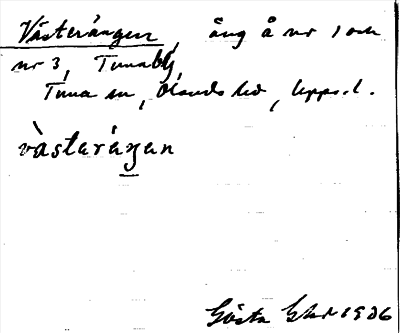 Västerängen, äng å nr 1 och
nr 3, Tunaby,
Tuna sn, Olands hd, Upps. l.
västäráŋen
Gösta 1936